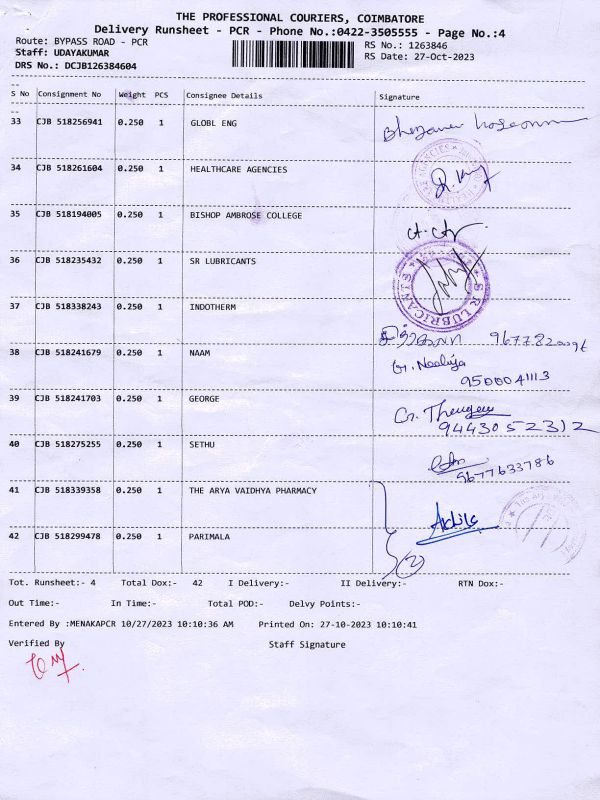 THE PROFESSIONAL COURIERS, COIMBATORE
Delivery Runsheet - PCR - Phone No.:0422-3505555 - Page No.:4
Route: BYPASS ROAD - PCR
RS No.: 1263846
Staff: UDAYAKUMAR
RS Date: 27-Oct-2023
DRS No.: DCJB126384604
S No Consignment No Weight PCS Consignee Details Signature
33 CJB 518256941 0.250 1 GLOBL ENG
34 CJB 518261604 0.250 1 HEALTHCARE AGENCIES
35 CJB 518194005 0.250 1 BISHOP AMBROSE COLLEGE
36 CJB 518235432 0.250 1 SR LUBRICANTS
S R LUBRICANTS
37 CJB 518338243 0.250 1 INDOTHERM
38 CJB 518241679 0.250 1 NAAM
9500041113
39 CJB 518241703 0.250 1 GEORGE
9443052312
40 CJB 518275255 0.250 1 SETHU
9677633786
41 CJB 518339358 0.250 1 THE ARYA VAIDHYA PHARMACY
42 CJB 518299478 0.250 1 PARIMALA
(2)
Tot. Runsheet:- 4 Total Dox:- 42 I Delivery:- II Delivery:- RTN Dox:-
Out Time:- In Time:- Total POD:- Delvy Points:-
Entered By :MENAKAPCR 10/27/2023 10:10:36 AM Printed On: 27-10-2023 10:10:41
Verified By Staff Signature